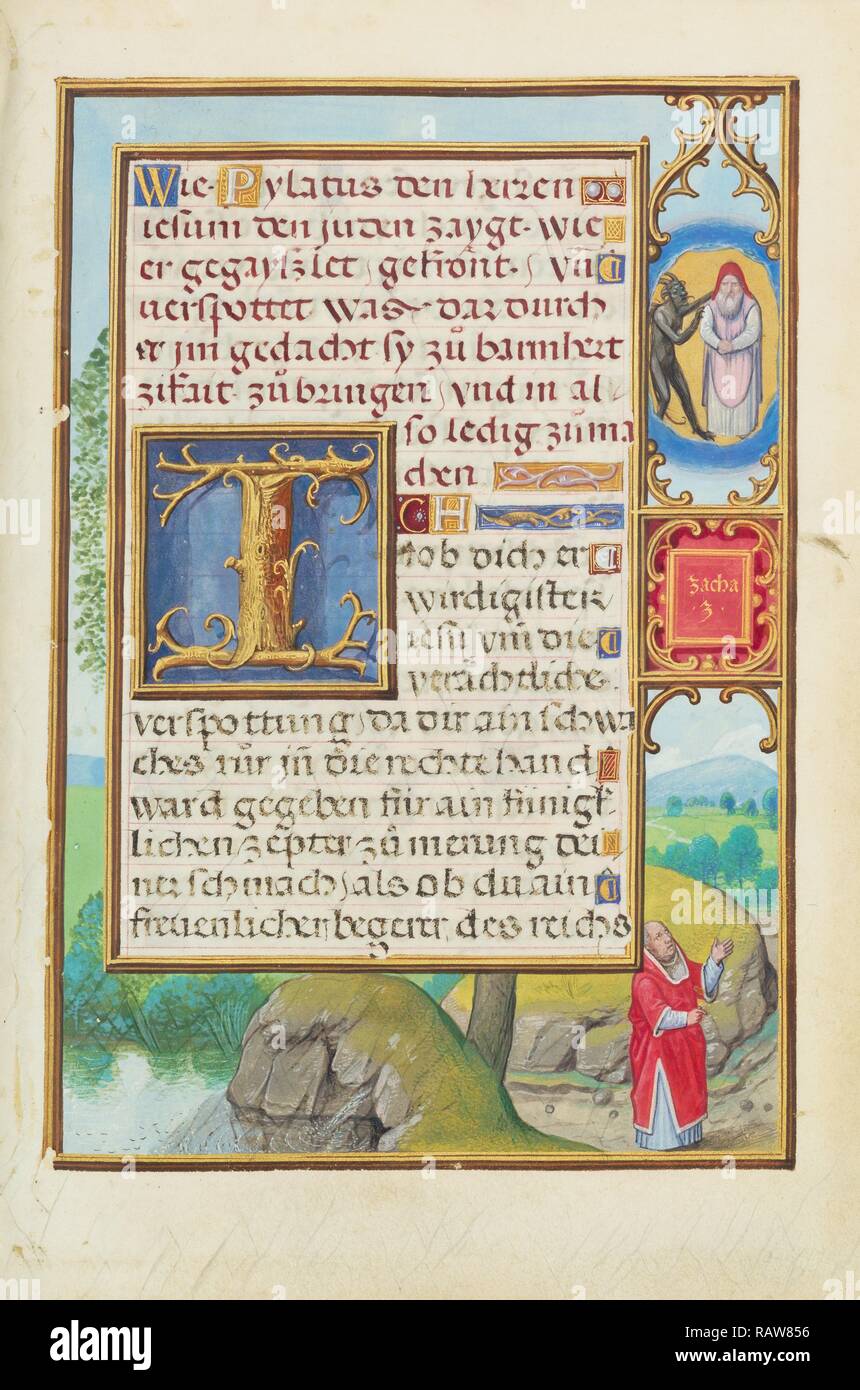 Wie Pylatus den herren
iesum den juden zaygt. wie
er gegayszlet, gekrönt, vn̄
uerspottet was, dar durch
er jm gedacht sy zů barmhert
zikait zůbringen, vnd in al
so ledig zůma
chen
ICH
lob dich er
wirdigister
iesu vm̄ die
verächtliche
verspottung, da dir ain schwa
ches rür jn̄ die rechte hand
ward gegeben für ain künigk
lichen zepter zů merung dei
ner schmach, als ob du ain
freuenlicher begerer des reichs
zacha
3
alamy
Image ID: RAW856
www.alamy.com